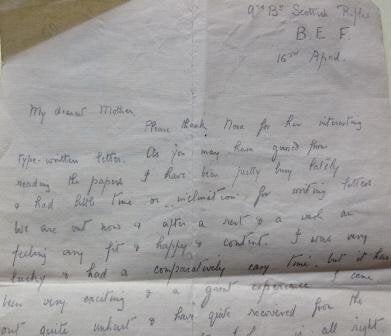 9th Bn Scottish Rifles
B. E. F.
16th April.
My dearest Mother
Please thank Nora for her interesting
type-written letter. As you may have guessed from
reading the papers I have been pretty busy lately
& had little time or inclination for writing letters
We are out now & after a rest & a wash am
feeling very fit & happy & content. I was very
lucky & had a comparatively easy time. but it has
been very exciting & a great experience I came
out quite unhurt & have quite recovered from the
is all right